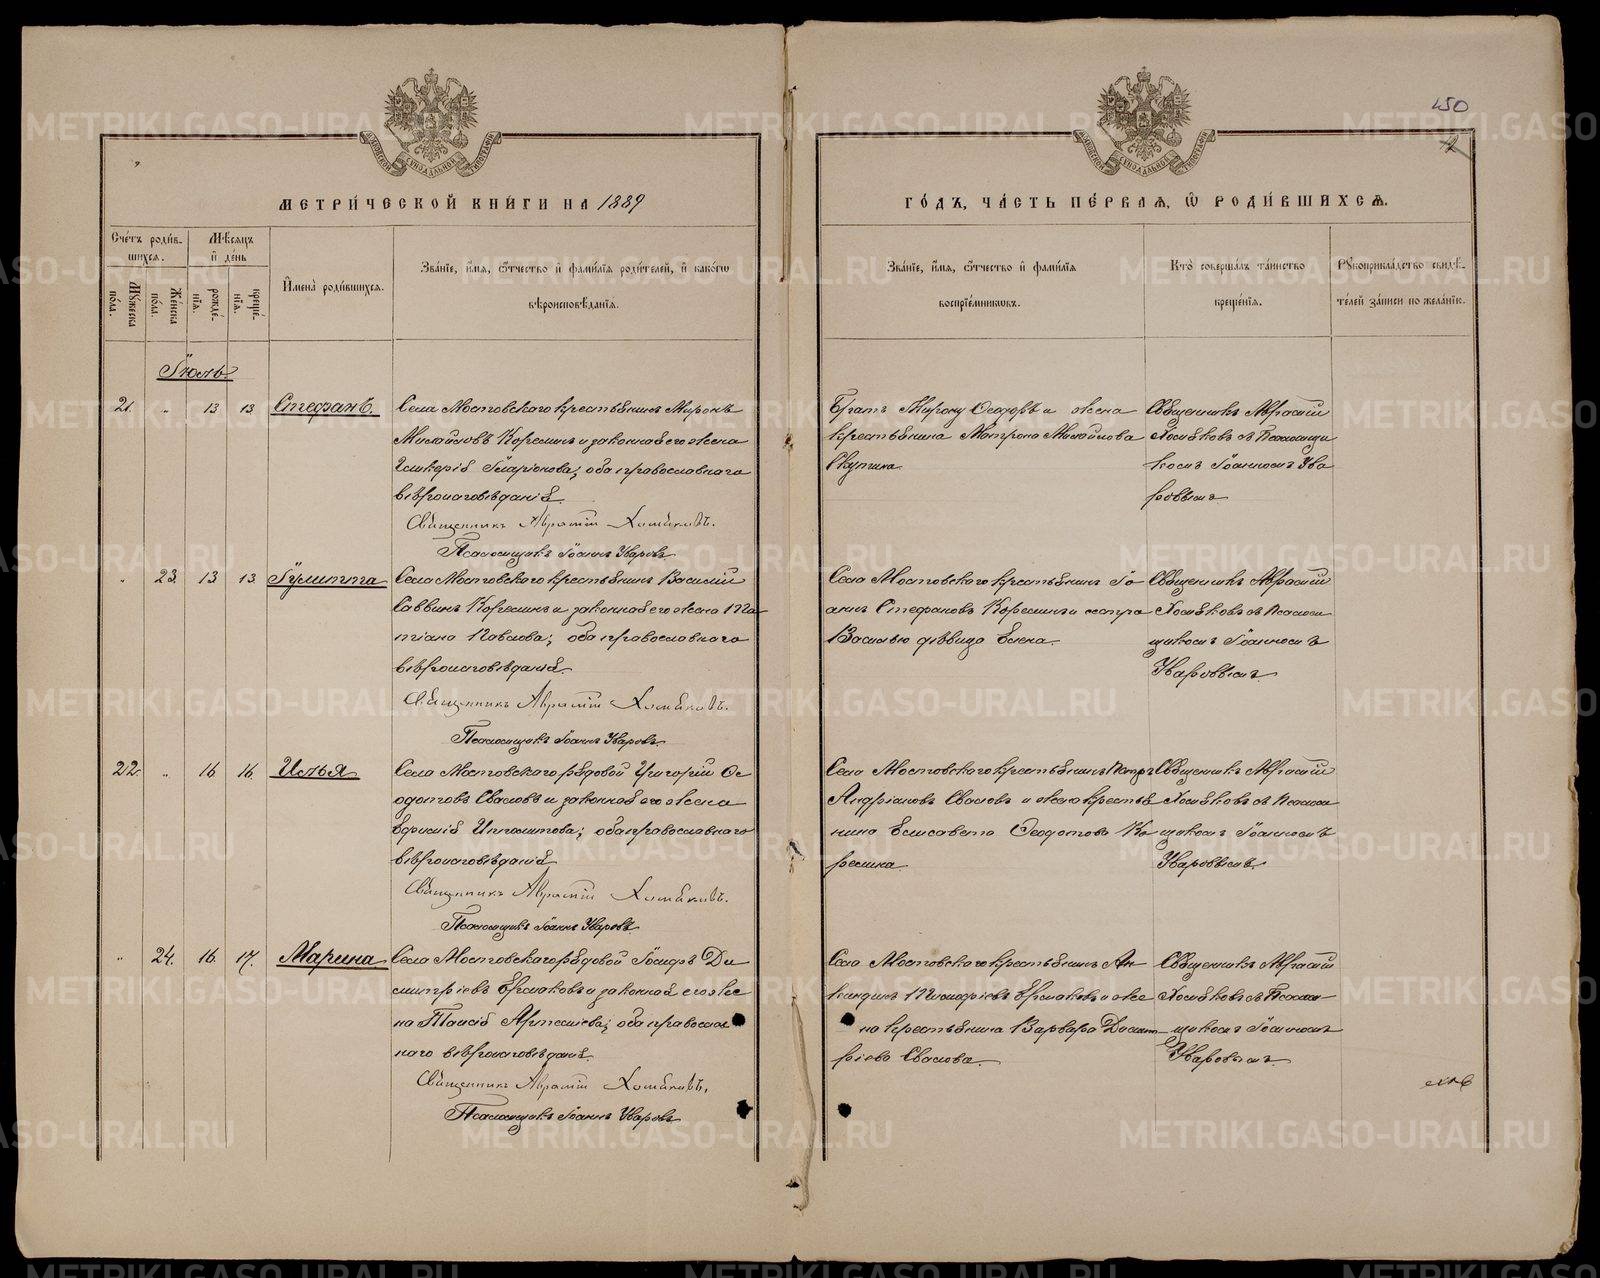 150
12
МЕТРИ́ЧЕСКОЙ КНИ́ГИ НА 1889
ГО́ДЪ, ЧА́СТЬ ПЕ́РВАЯ, Ѡ РОДИ́ВШИХСЯ.
Сче́тъ роди́в-
шихся.
Мѣ́сяцъ
и де́нь
Имена̀ роди́вшихся.
Зва́нїе, и́мя, ѻ́тчество и фами́лїя роди́телей, и како́гѡ
вѣроисповѣ́данїя.
Му́жеска по́ла.
Же́нска по́ла.
рожде́нїя.
креще́нїя.
Зва́нїе, и́мя, ѻ́тчество и фами́лїя
воспрїе́мниковъ.
Кто̀ соверша́лъ та́инство
креще́нїя.
Рукоприкла́дство свидѣ́-
телей за́писи по жела́нїю.
Іюль
21. " 13 13 Стефанъ.
Села Мостовскаго крестьянинъ Миронъ
Михайловъ Корелинъ и законная его жена
Гликерія Иларіонова; оба православнаго
вѣроисповѣданія.
Священникъ Аврамій Хомяковъ.
Псаломщикъ Іоаннъ Уваровъ
Братъ Мирону Ѳеодоръ и жена
крестьянина Матрона Михайлова
Священникъ Аврамій
Хомяковъ съ Псаломщи
комъ Іоанномъ Ува
ровымъ
" 23. 13 13 Іулитта
Села Мостовскаго крестьянинъ Василій
Саввинъ Корелинъ и законная его жена Та
тіана Павлова; оба православнаго
вѣроисповѣданія.
Священникъ Аврамій Хомяковъ.
Псаломщикъ Іоаннъ Уваровъ
Села Мостовскаго крестьянинъ Іо
аннъ Стефановъ Корелинъ и сестра
Василью дѣвица Елена.
Священникъ Аврамій
Хомяковъ съ Псалом
щикомъ Іоанномъ
Уваровымъ
22. " 16 16 Илья
Села Мостовскаго рядовой Григорій Ѳе
одотовъ Сваловъ и законная его жена
Евфимія Ипполитова; оба православнаго
вѣроисповѣданія
Священникъ Аврамій Хомяковъ.
Псаломщикъ Іоаннъ Уваровъ
Села Мостовскаго крестьянинъ Петръ
Андріановъ Сваловъ и жена крестья
нина Елисавета Ѳеодотова Ко
релина
Священникъ Аврамій
Хомяковъ съ Псалом
щикомъ Іоанномъ
Уваровымъ.
" 24. 16. 17. Марина
Села Мостовскаго рядовой Исидръ Ди
митріевъ Ермаковъ и законная его же
на Таисія Артемьева; оба православ
наго вѣроисповѣданія.
Священникъ Аврамій Хомяковъ.
Псаломщикъ Іоаннъ Уваровъ
Села Мостовскаго крестьянинъ
Ермаковъ и же
на крестьянина Варвара Димит
ріева Свалова.
Священникъ Аврамій
Хомяковъ съ Псалом
щикомъ Іоанномъ
Уваровымъ